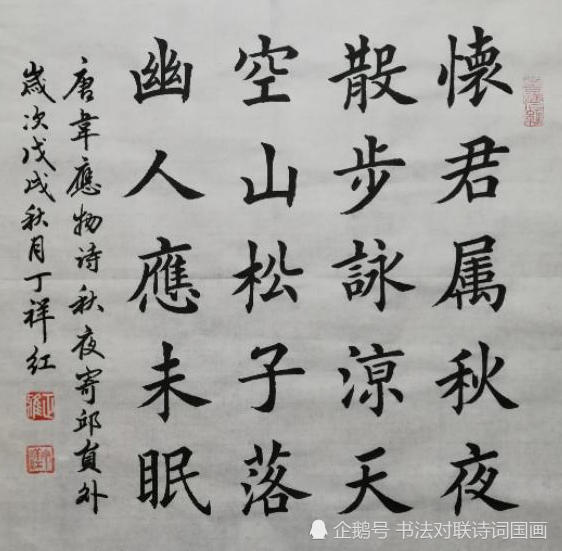 懷君属秋夜
散步詠涼天
空山松子落
幽人應未眠
唐韋應物诗秋夜寄邱員外
歲次戊戌秋月丁祥红
企鹅号 书法对联诗词国画